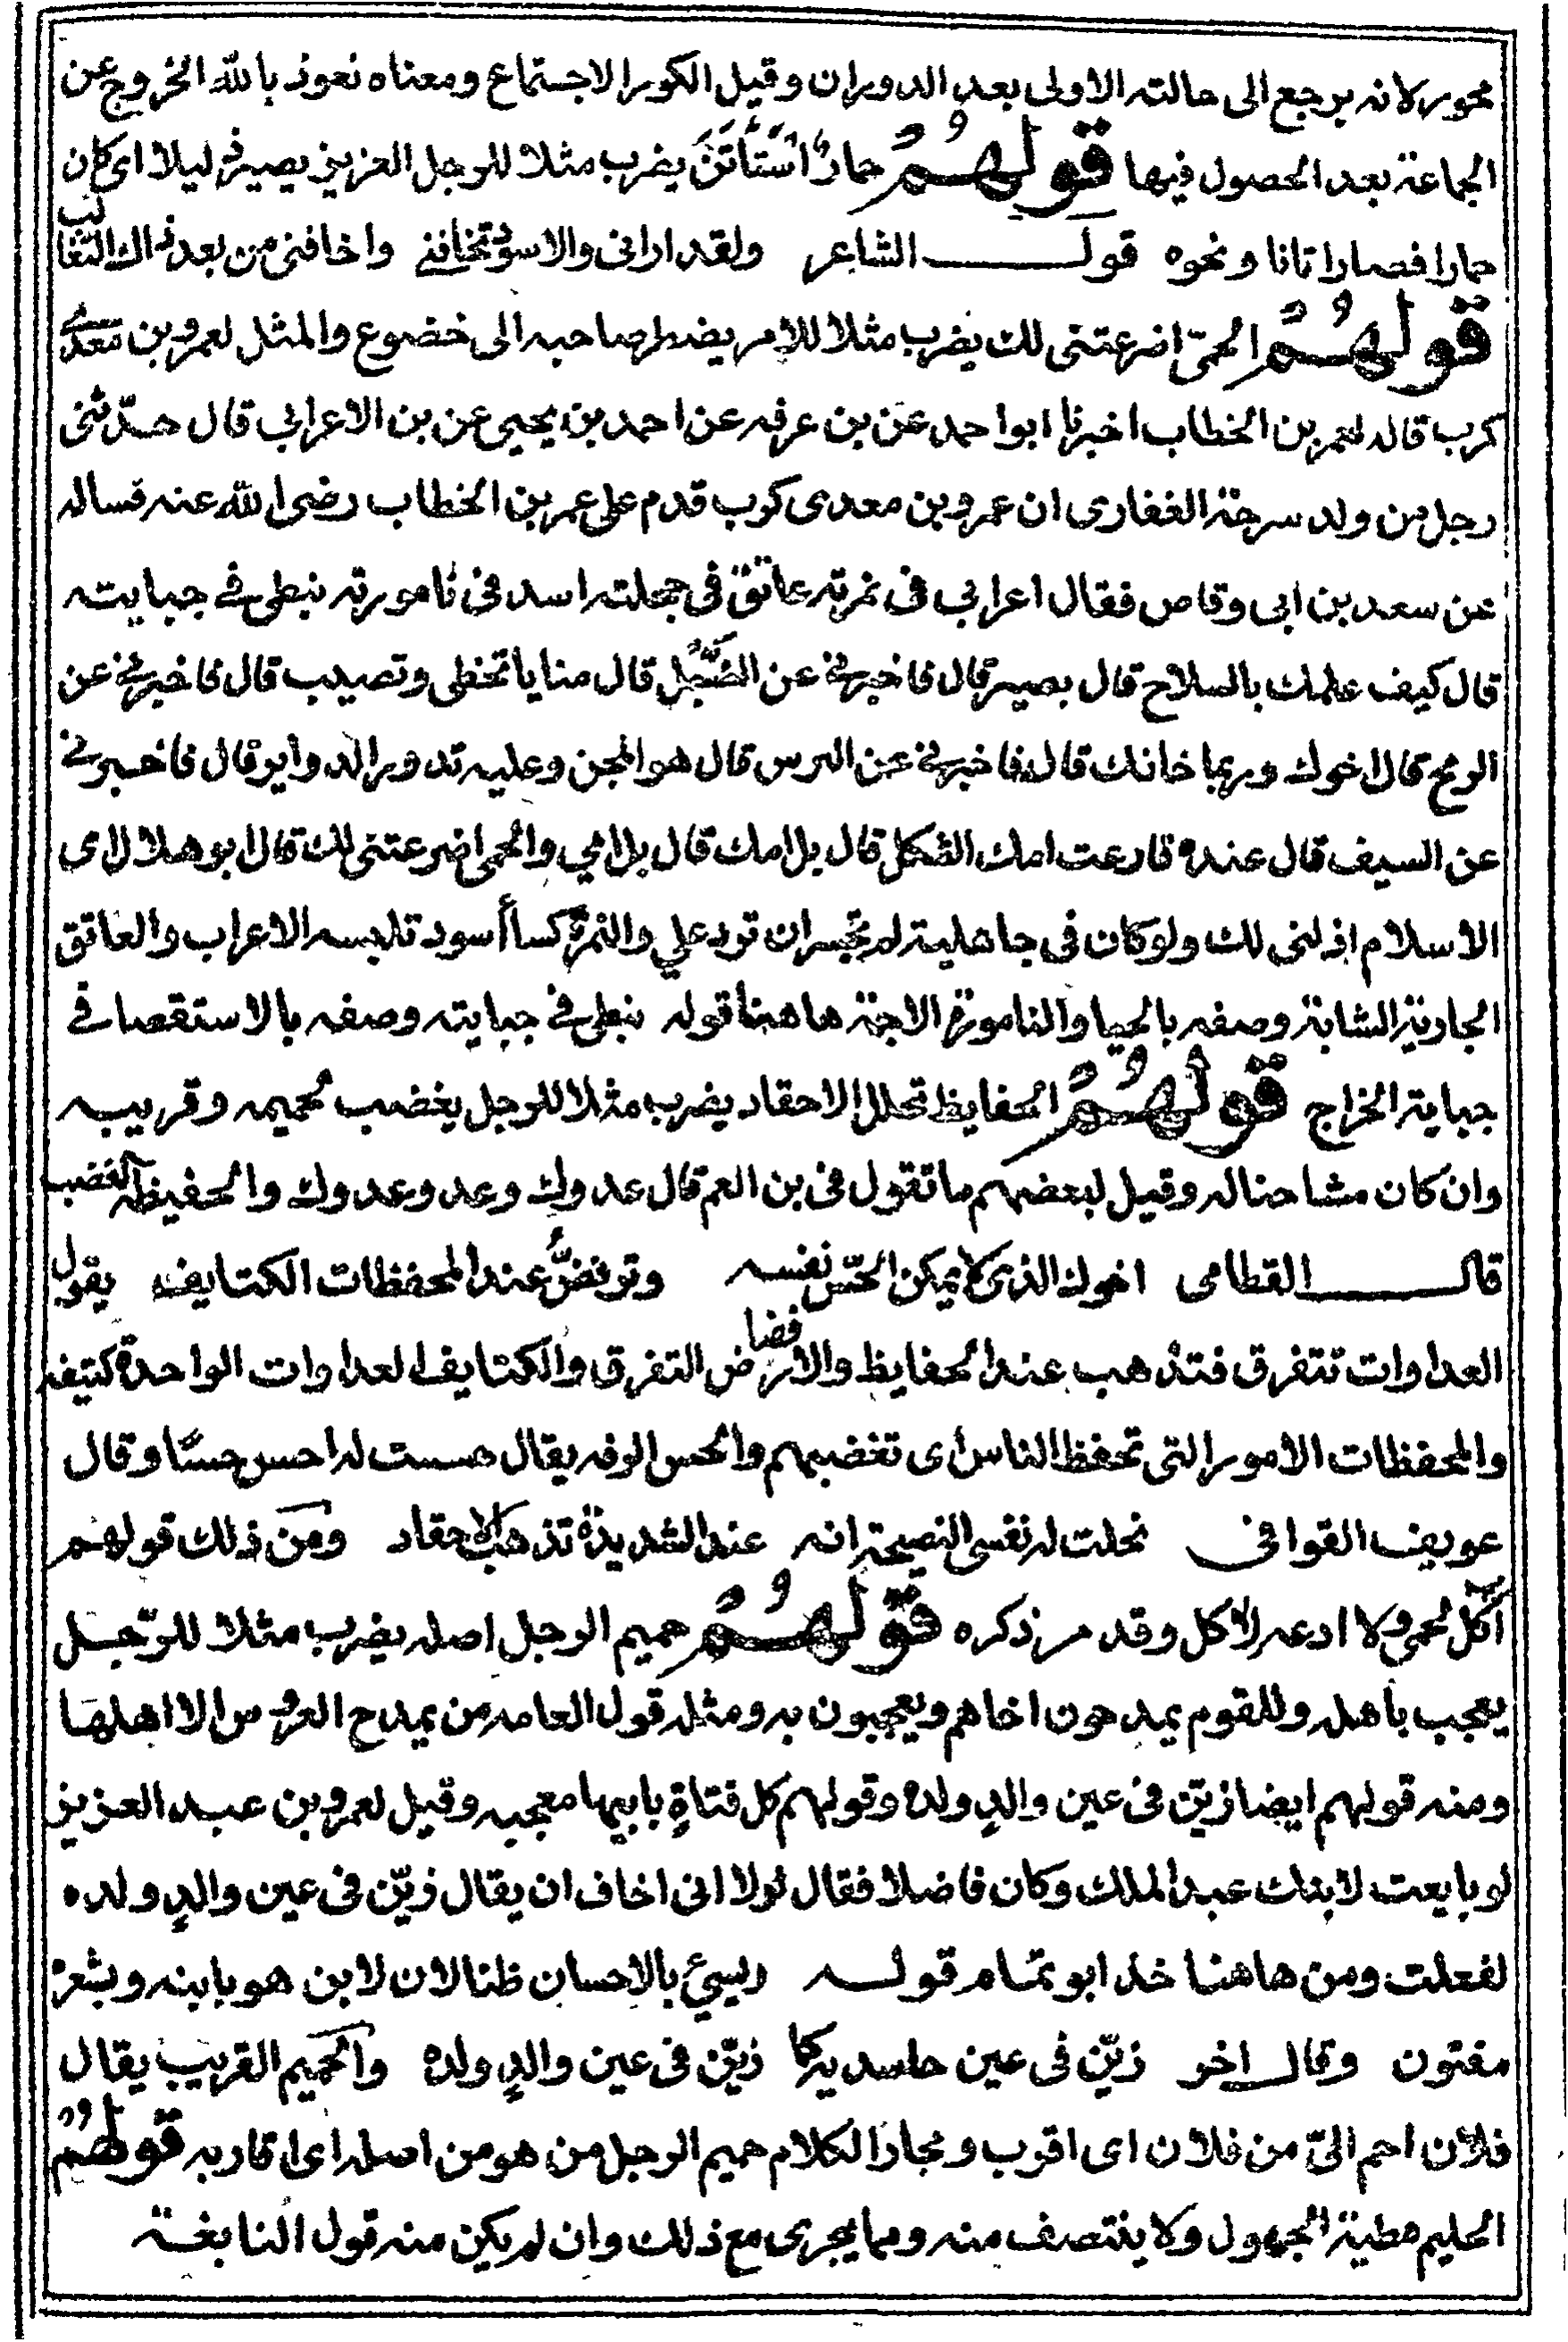 محور لانه يرجع الى حالته الاولى بعد الدوران وقيل الكور الاجتماع ومعناه نعوذ بالله الخروج عن
الجماعة بعد الحصول فيها قولهم حمارٌ اسْتَأْتَنَ يضرب مثلا للرجل العزيز يصير ذليلا اى كان
حمارا فصار اتانا ونحوه قول الشاعر ولقد ارانى والاسود تخافنى واخافنى من بعد ذاك الثعالب
قولهم الحمّى اضرعتنى لك يضرب مثلا للامر يضطر صاحبه الى خضوع والمثل لعمرو بن معدى
كرب قاله لعمر بن الخطاب اخبرنا ابو احمد عن بن عرفه عن احمد بن يحيى عن بن الاعرابي قال حدّثنى
رجل من ولد سرحة الغفارى ان عمرو بن معدى كرب قدم على عمر بن الخطاب رضى الله عنه فساله
عن سعد بن ابى وقاص فقال اعرابي فى نمرته عاتق فى حجلته اسد فى نامورته نبطى فى جبايته
قال كيف علمك بالسلاح قال بصير قال فاخبرنى عن النبل قال منايا تخطى وتصيب قال فاخبرنى عن
الرمح قال اخوك وربما خانك قال فاخبرنى عن الترس قال هو المجن وعليه تدور الدواير قال فاخبرنى
عن السيف قال عنده قارعت امك الثكل قال بل امك قال بل امي والحمى اضرعتنى لك قال ابو هلال اى
الاسلام اذلنى لك ولو كان فى جاهلية لم تجسر ان ترد علي والنمرة كساأ أسود تلبسه الاعراب والعاتق
الجارية الشابة وصفه بالحيا والنامورة الاجمة هاهنا قوله نبطى فى جبايته وصفه بالاستقصا فى
جباية الخراج قولهم الحفايظ تحلل الاحقاد يضرب مثلا للرجل يغضب لحميمه وقريبه
وان كان مشاحنا له وقيل لبعضهم ما تقول فى بن العم قال عدوك وعدو عدوك والحفيظة الغضب
قال القطامى اخوك الذى لا يمكن الحسّ نفسه وترفضّ عند المحفظات الكتايف يقول
العداوات تتفرق فتذهب عند الحفايظ والارفضاض التفرق والكتايف العداوات الواحدة كتيفه
والمحفظات الامور التى تحفظ الناس اى تغضبهم والحس الرقه يقال حسست له احس حسًا وقال
عويف القوافى نخلت له نفسى النصيحة انه عند الشديدة تذهب الاحقاد ومن ذلك قولهم
آكل لحمى ولا ادعه لاكل وقد مر ذكره قولهم حميم الرجل اصله يضرب مثلا للرّجل
يعجب باهله وللقوم يمدحون اخاهم ويعجبون به ومثله قول العامه من يمدح العروس الا اهلها
ومنه قولهم ايضا زيّن فى عين والدٍ ولده وقولهم كل فتاةٍ بابيها معجبه وقيل لعمرو بن عبد العزيز
لو بايعت لابنك عبد الملك وكان فاضلا فقال لولا انى اخاف ان يقال زيّن فى عين والدٍ ولده
لفعلت ومن هاهنا خذ ابو تمام قوله ويسيئ بالاحسان ظنا لان لابن هو بابنه وبشعره
مفتون وقال اخر زيّن فى عين حاسديه كما زيّن فى عين والدٍ ولده والحميم القريب يقال
فلان احم اليّ من فلان اى اقرب ومجاز الكلام حميم الرجل من هو من اصله اى اقاربه قولهم
الحليم مطية الجهول ولا ينتصف منه ومما يجرى مع ذلك وان لم يكن منه قول النابغة